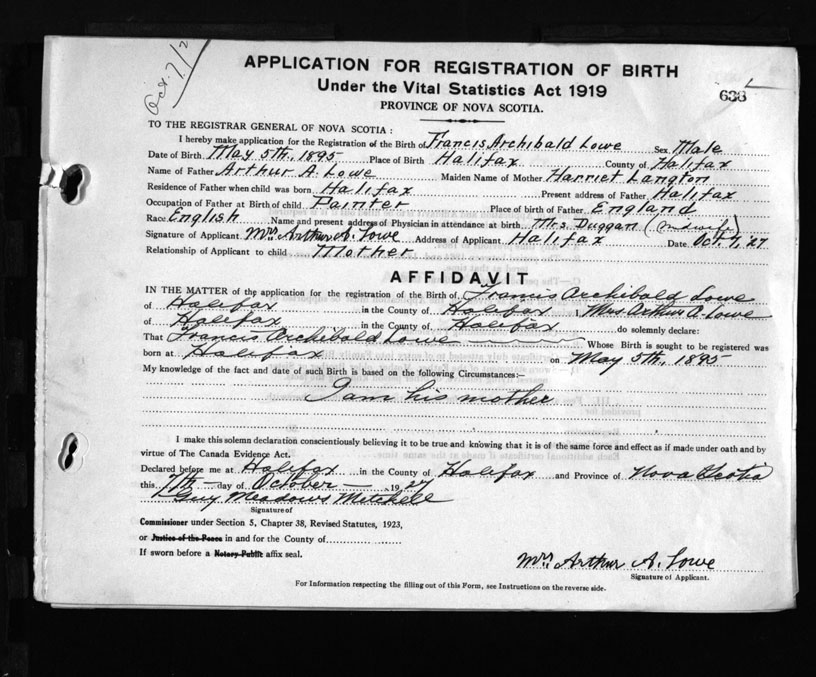 Oct. 7/2
APPLICATION FOR REGISTRATION OF BIRTH
Under the Vital Statistics Act 1919
PROVINCE OF NOVA SCOTIA.
638
TO THE REGISTRAR GENERAL OF NOVA SCOTIA:
I hereby make application for the Registration of the Birth of Francis Archibald Lowe Sex Male
Date of Birth May 5th, 1895 Place of Birth Halifax County of Halifax
Name of Father Arthur A. Lowe Maiden Name of Mother Harriet Langton
Residence of Father when child was born Halifax Present address of Father Halifax
Occupation of Father at Birth of child Painter Place of birth of Father England
Race English Name and present address of Physician in attendance at birth Mrs. Duggan (midwife)
Signature of Applicant Mrs Arthur A. Lowe Address of Applicant Halifax Date Oct 7, '27
Relationship of Applicant to child Mother
AFFIDAVIT
IN THE MATTER of the application for the registration of the Birth of Francis Archibald Lowe
of Halifax in the County of Halifax I, Mrs Arthur A. Lowe
of Halifax in the County of Halifax do solemnly declare:
That Francis Archibald Lowe Whose Birth is sought to be registered was
born at Halifax on May 5th, 1895
My knowledge of the fact and date of such Birth is based on the following Circumstances:-
I am his mother
I make this solemn declaration conscientiously believing it to be true and knowing that it is of the same force and effect as if made under oath and by
virtue of The Canada Evidence Act.
Declared before me at Halifax in the County of Halifax and Province of Nova Scotia
this 7th day of October 1927
Guy Meadows Mitchell
Signature of
Commissioner under Section 5, Chapter 38, Revised Statutes, 1923,
or Justice of the Peace in and for the County of
If sworn before a Notary Public affix seal.
Mrs Arthur A. Lowe
Signature of Applicant.
For Information respecting the filling out of this Form, see Instructions on the reverse side.